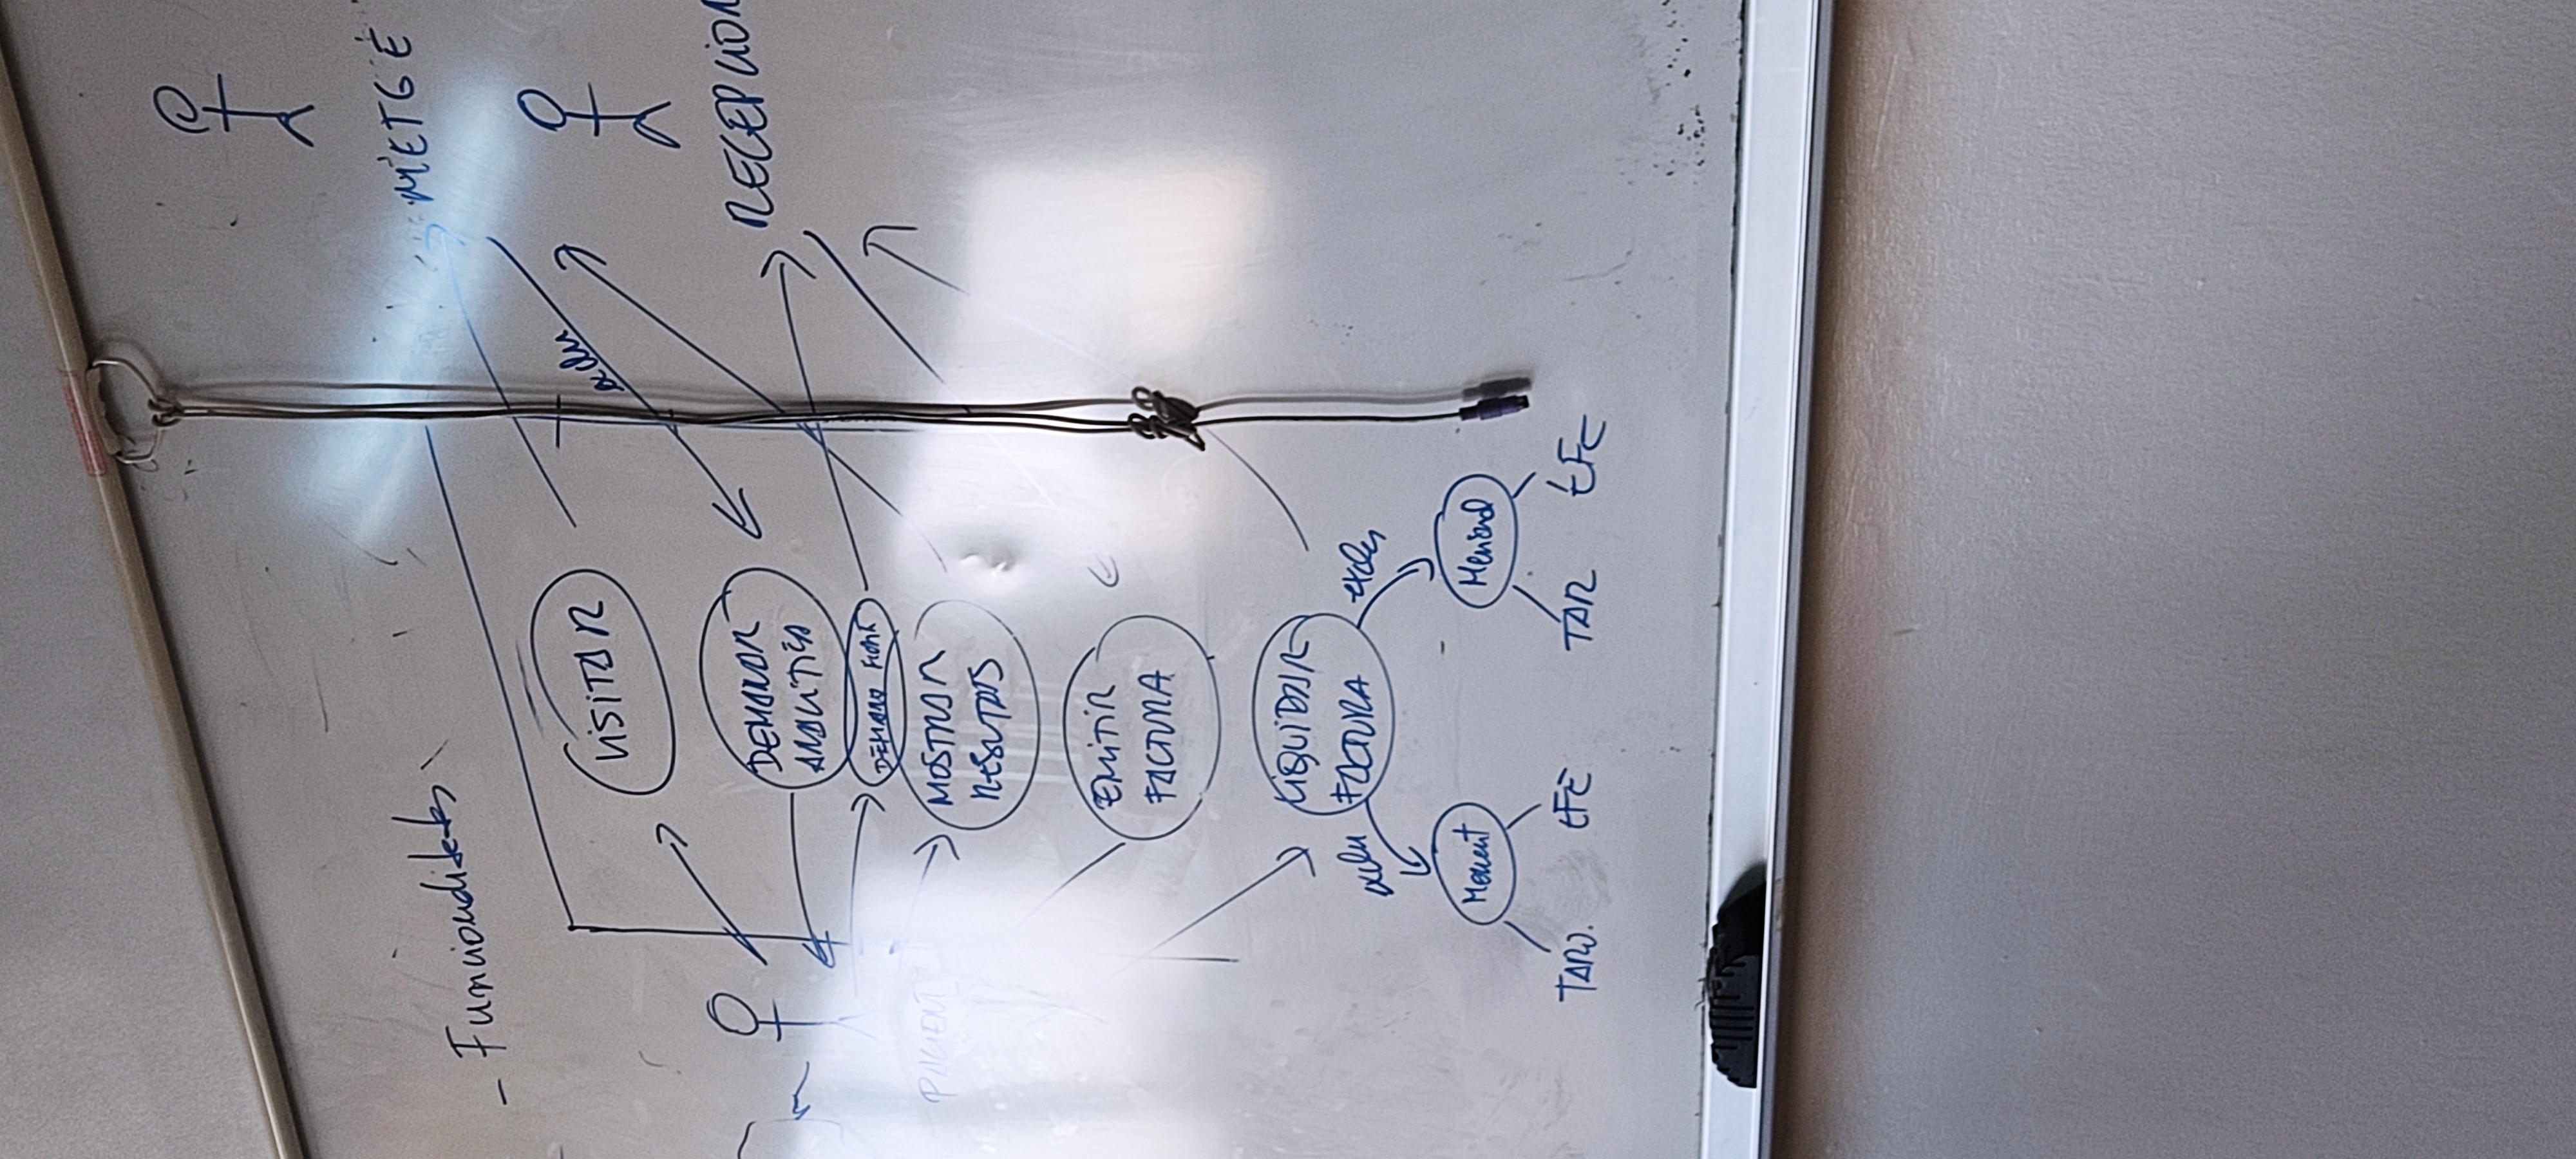 METGE
- Funcionalitats
VISITAR
exclu
DEMANAR
ANALÍTICA
RECEPCION
DEMANAR HORA
PACIENT
MOSTRAR
RESUTATS
EMITIR
FACTURA
LIQUIDAR
FACTURA
exclu
exclu
Moment
Mensual
TARJ.
EFE
TAR
EFE